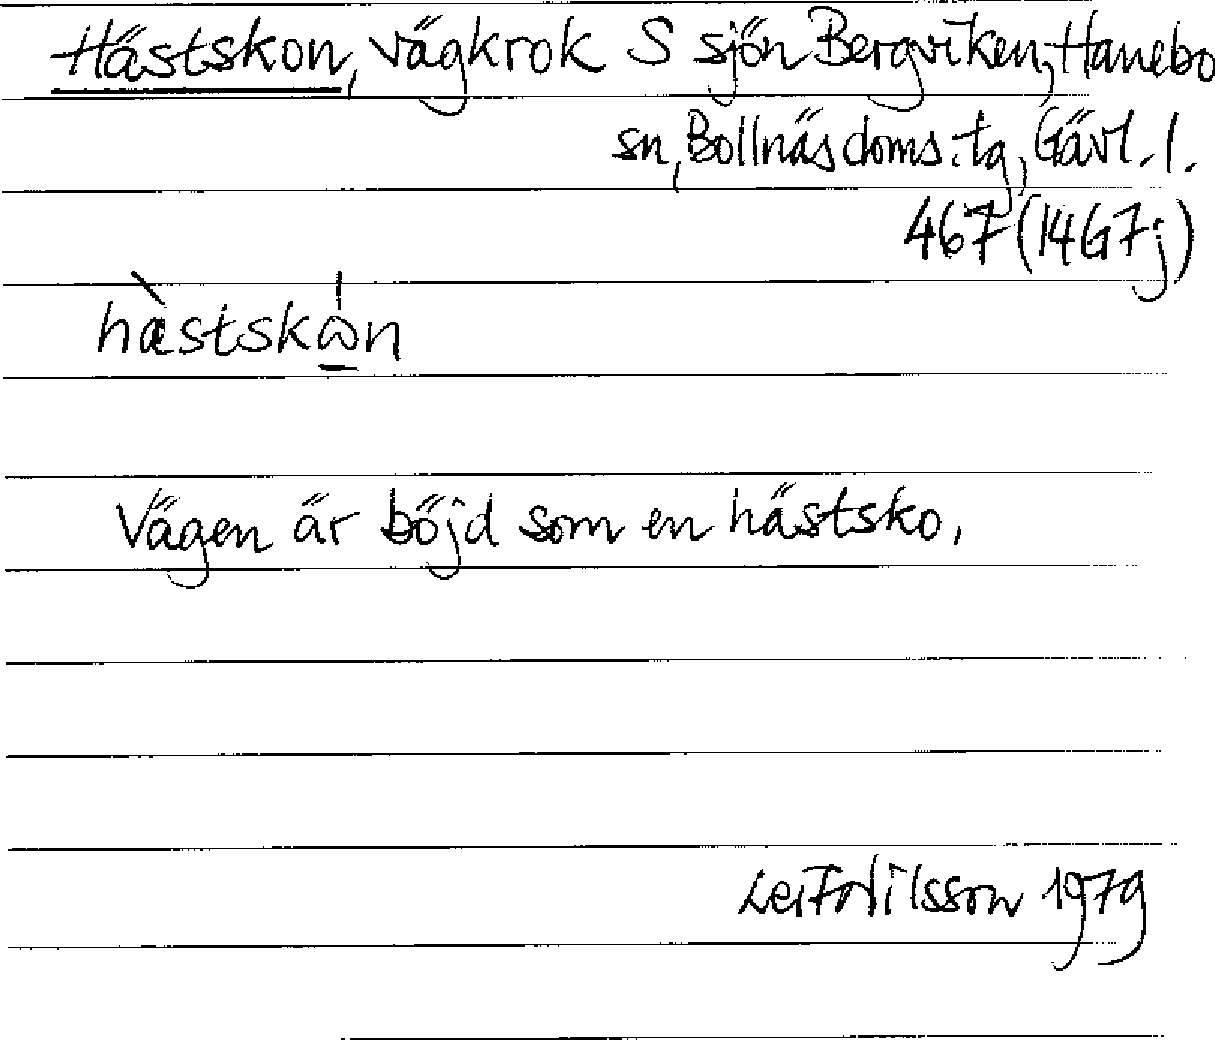 Hästskon, vägkrok S sjön Bergviken, Hanebo
sn, Bollnäs doms.tg, Gävl. l.
467 (14G7j)
hästskon
Vägen är böjd som en hästsko.
Leif Nilsson 1979